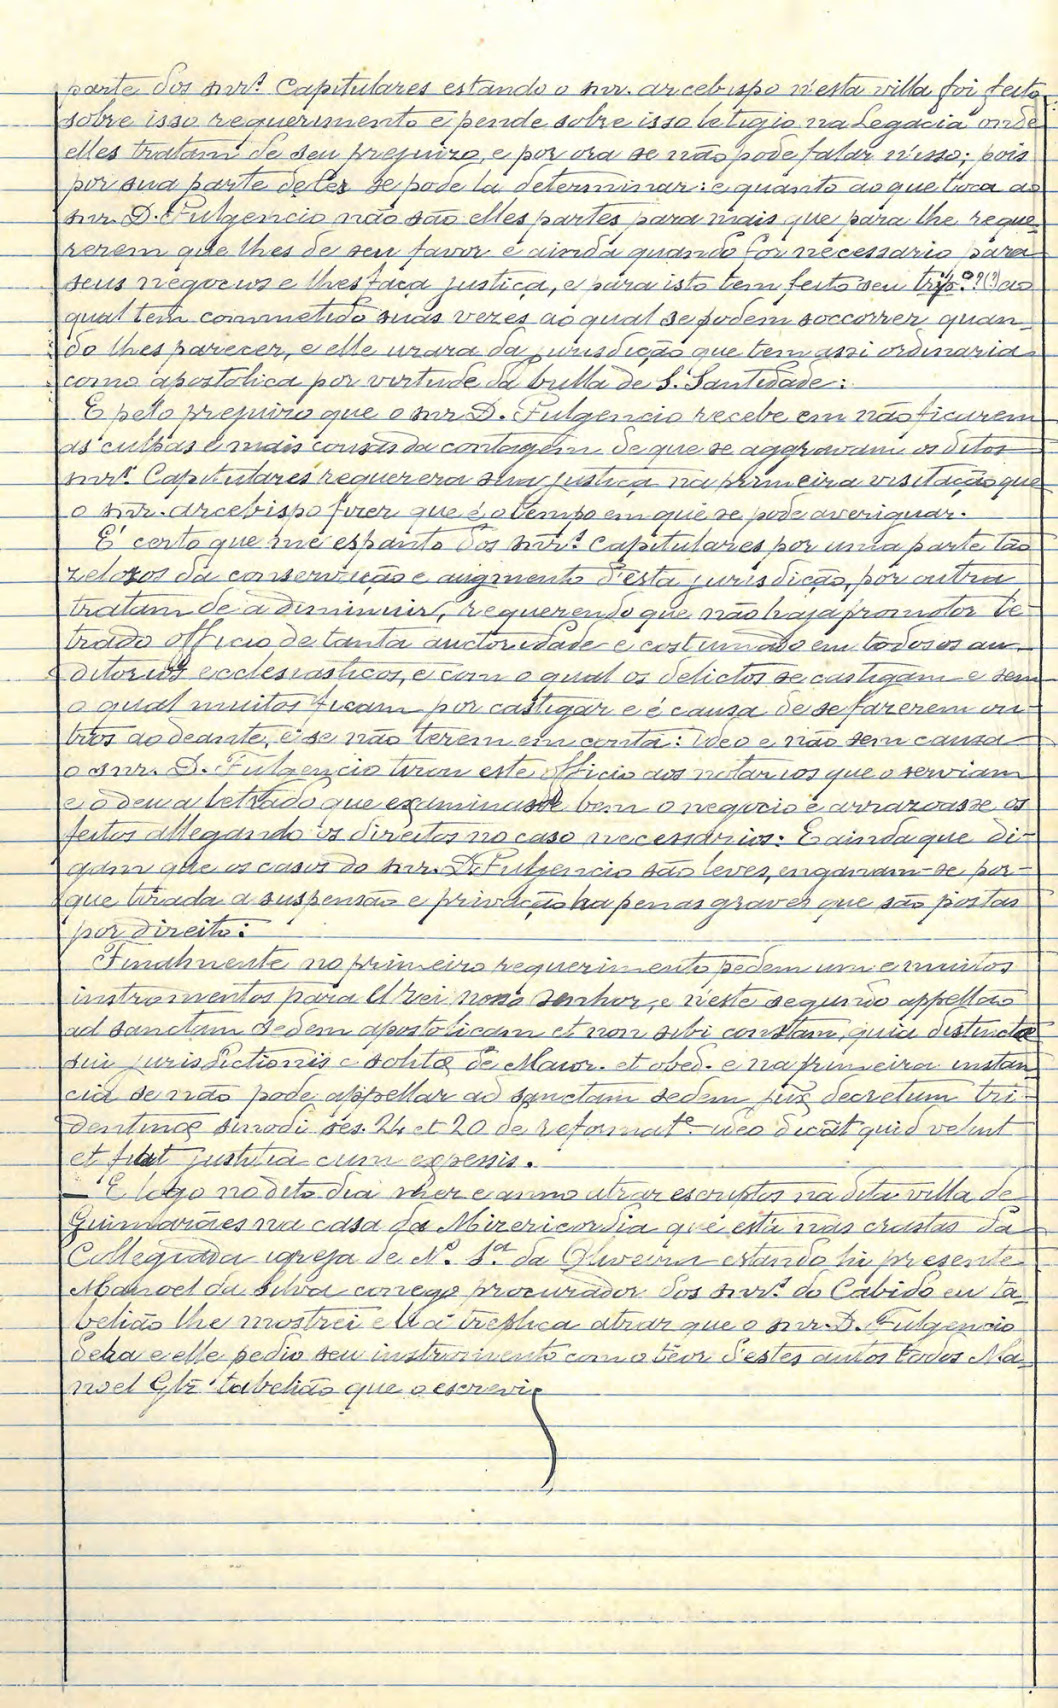 parte dos snr.s Capitulares estando o snr. arcebispo n'esta villa foi feito
sobre isso requerimento e pende sobre isso letigio na Legacia onde
elles tratam de seu prejuizo, e por ora se não pode falar n'isso; pois
por sua parte deles se pode la determinar: e quanto ao que toca ao
snr. D. Fulgencio não são elles partes para mais que para lhe reque-
rerem que lhes de seu favor e ainda quando for necessario para
seus negocios e lhes faça justiça, e para isto tem feito seu (?) ao
qual tem commetido suas vezes ao qual se podem soccorrer quan-
do lhes parecer, e elle uzara da jurisdicção que tem assi ordinaria
como apostolica por virtude da bulla de S. Santidade:
E pelo prejuizo que o snr D. Fulgencio recebe em não ficarem
as culpas e mais cousas da contagem de que se aggravam os ditos
snr.s Capitulares requerera sua justiça na primeira visitação que
o snr. arcebispo fizer que é o tempo em que se pode averiguar.
E' certo que me espanto dos snr.s Capitulares por uma parte tão
zelozos da conservação e augmento d'esta jurisdicção, por outra
tratam de a diminuir, requerendo que não haja promotor le-
trado officio de tanta auctoridade e costumado em todos os au-
ditorios ecclesiasticos, e com o qual os delictos se castigam e sem
o qual muitos ficam por castigar e é causa de se fazerem ou-
tros ao deante, e se não terem em conta: ideo e não sem causa
o snr. D. Fulgencio tirou este officio aos notarios que o serviam
e o deu a letrado que examinasse bem o negocio e arrazoasse os
feitos allegando os direitos no caso necessarios: E ainda que di-
gam que os casos do snr. D. Fulgencio são leves, enganam-se por-
que tirada a suspensão e privação ha penas graves que são postas
por direito:
Finalmente no primeiro requerimento pedem um e muitos
instromentos para El rei nosso senhor, e n'este segundo appellão
ad sanctam sedem apostolicam et non sibi constam, quia distincte
sui jurisdictionis e solite de Maior. et obed. e na primeira instan
cia se não pode appellar ad sanctam sedem decretum tri-
dentinæ sinodi ses. 24 et 20 de reformat.e ideo dicãt quid velint
et fiat justitia cum expensis.
— E logo no dito dia mez e anno atraz escriptos na dita villa de
Guimarães na casa da Mizericordia que está nas crastas da
Collegiada igreja de N.a S.ra da Oliveira estando hi presente
Manoel da Silva conego procurador dos snr.s do Cabido eu ta-
belião lhe mostrei e li a treplica atraz que o snr. D. Fulgencio
deha e elle pedio seu instromento com o teor d'estes autos todos Ma-
noel Glz tabelião que o escrevi